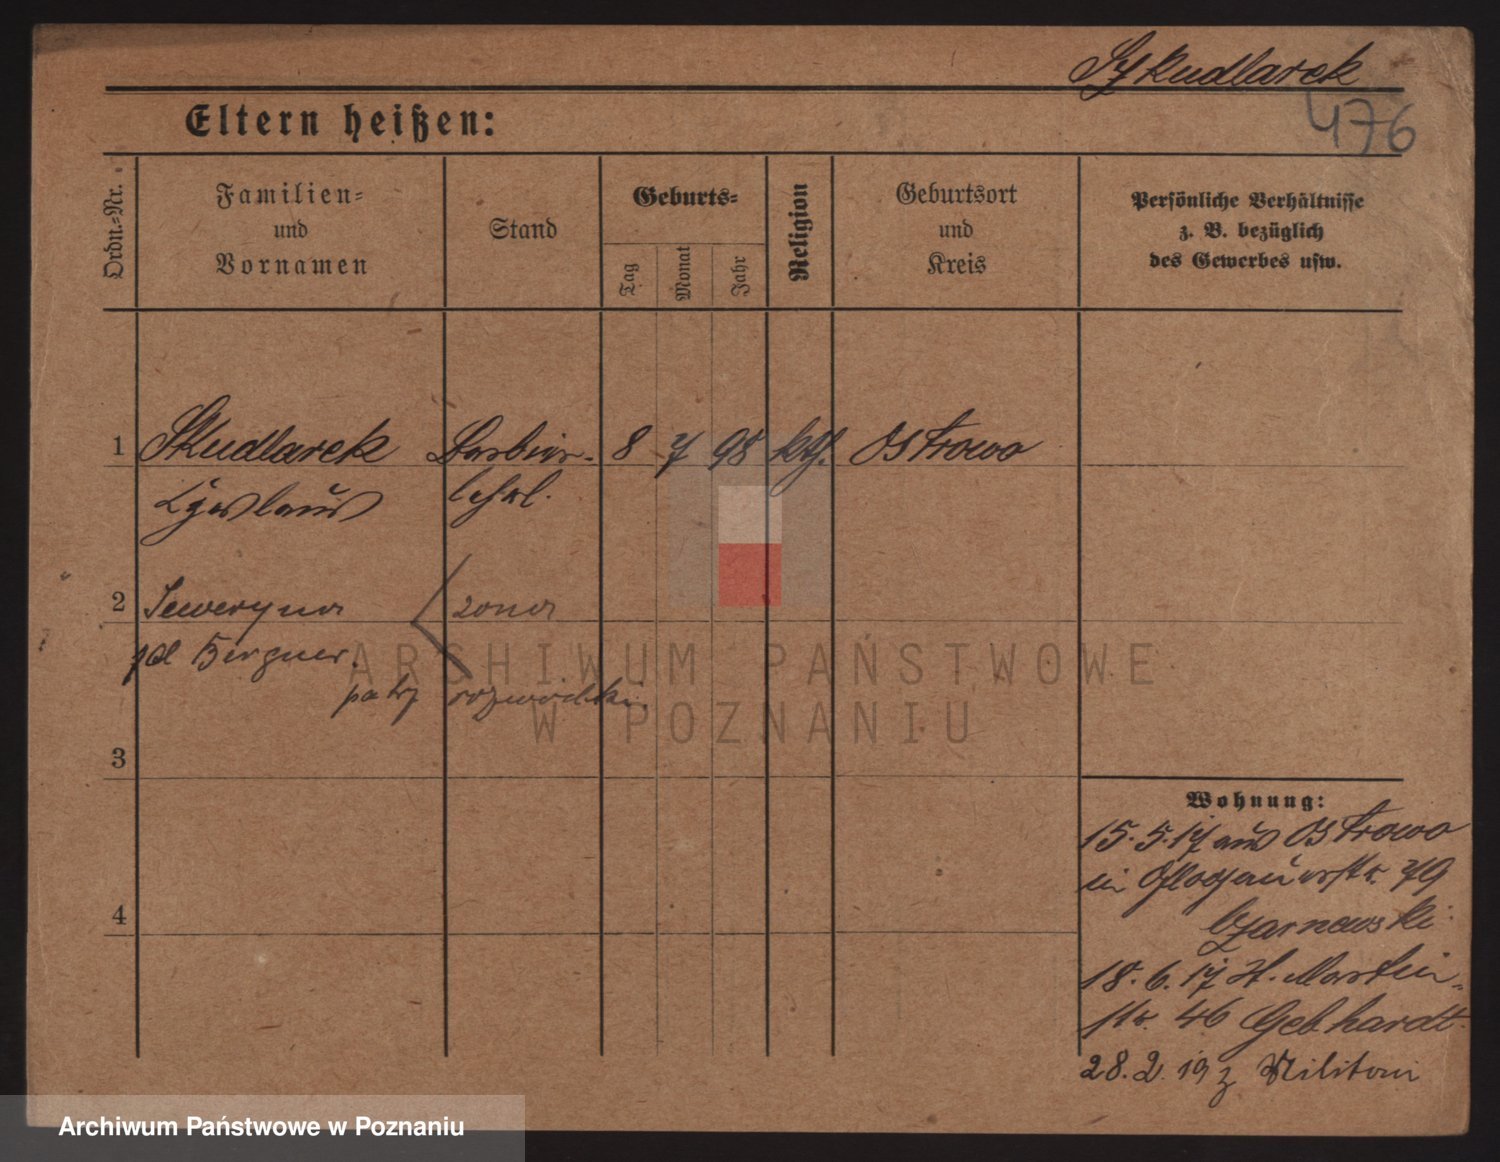 Szkudlarek
476
Eltern heißen:
Ordn.-Nr.
Familien-
und
Vornamen
Stand
Geburts-
Tag
Monat
Jahr
Religion
Geburtsort
und
Kreis
Persönliche Verhältnisse
z. B. bezüglich
des Gewerbes usw.
1 Skudlarek Barbier- 8 7 98 kth. Ostrowo
lehrl.
2 Seweryna żona
zd Bergner.
patrz rozwódki.
3
4
Wohnung:
15.5.17 aus Ostrowo
in Glogauerstr. 79
Czarnewski
18.6.17 St. Martin-
str. 46 Gebhardt.
28.2.19 z Militari
ARCHIWUM PAŃSTWOWE
W POZNANIU
Archiwum Państwowe w Poznaniu